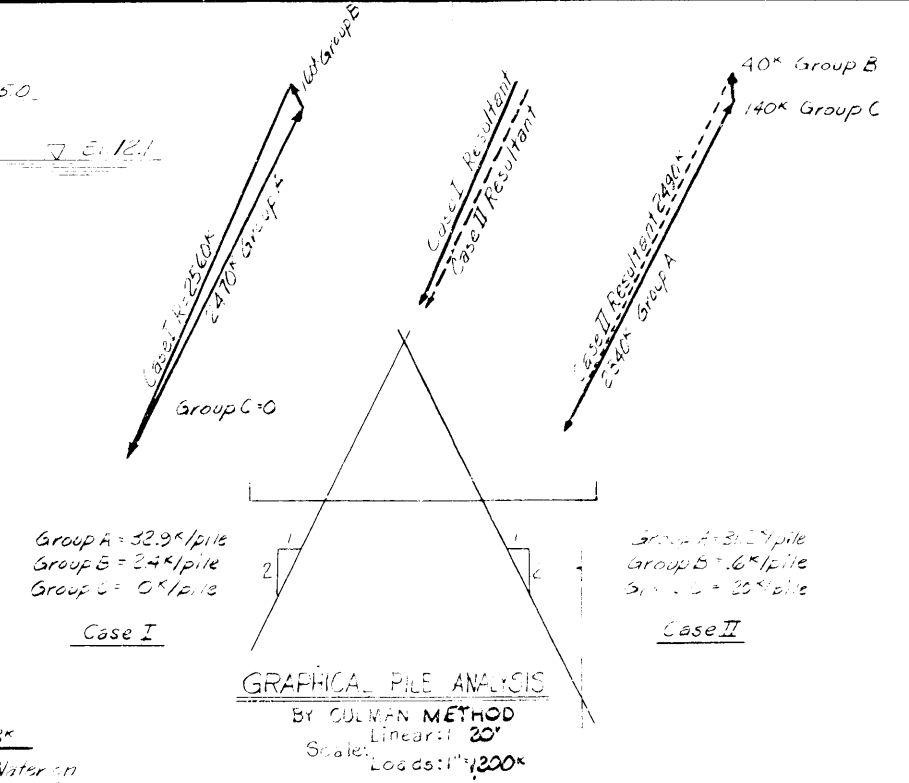 160ᴷ Group B
5.0
El. 12.1
Case I R=2560ᴷ
2470ᴷ Group A
Group C=0
Case I Resultant
Case II Resultant
40ᴷ Group B
140ᴷ Group C
Case II Resultant 2490ᴷ
2340ᴷ Group A
Group A = 32.9ᴷ/pile
Group B = 2.4ᴷ/pile
Group C = 0ᴷ/pile
Case I
1
2
1
Group B = .6ᴷ/pile
Case II
GRAPHICAL PILE ANALYSIS
BY CULMAN METHOD
Scale:
Linear: 1 20'
Loads: 1"=1200ᴷ
Water on